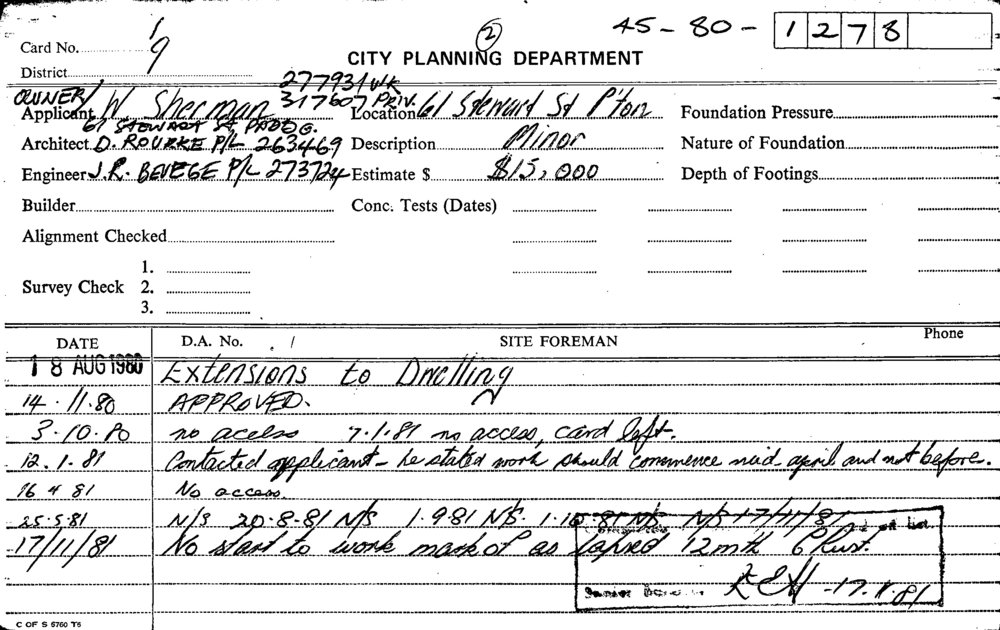 1/9 (2) 45 - 80 - 1278
Card No.
CITY PLANNING DEPARTMENT
District
277931 WK
OWNER/ Applicant W Sherman 317607 PRIV. Location 61 Stewart St P'ton Foundation Pressure
61 STEWART St PADDG.
Architect D. ROURKE P/L 263469 Description Minor Nature of Foundation
Engineer J.R. BEVEGE P/L 273724 Estimate $ $15,000 Depth of Footings
Builder Conc. Tests (Dates)
Alignment Checked
1.
Survey Check 2.
3.
DATE D.A. No. / SITE FOREMAN Phone
18 AUG 1980 Extensions to Dwelling
14.11.80 APPROVED.
3.10.80 no access 7.1.81 no access, card left.
12.1.81 Contacted applicant - he stated work should commence mid-april and not before.
16 4 81 No access.
25.5.81 N/S 20-8-81 N/S 1.9.81 N/S. 1.10.81 N/S N/S 17/11/81
17/11/81 No start to work mark of as lapsed 12mth
Senior
17.11.81
C OF S 6760 T5